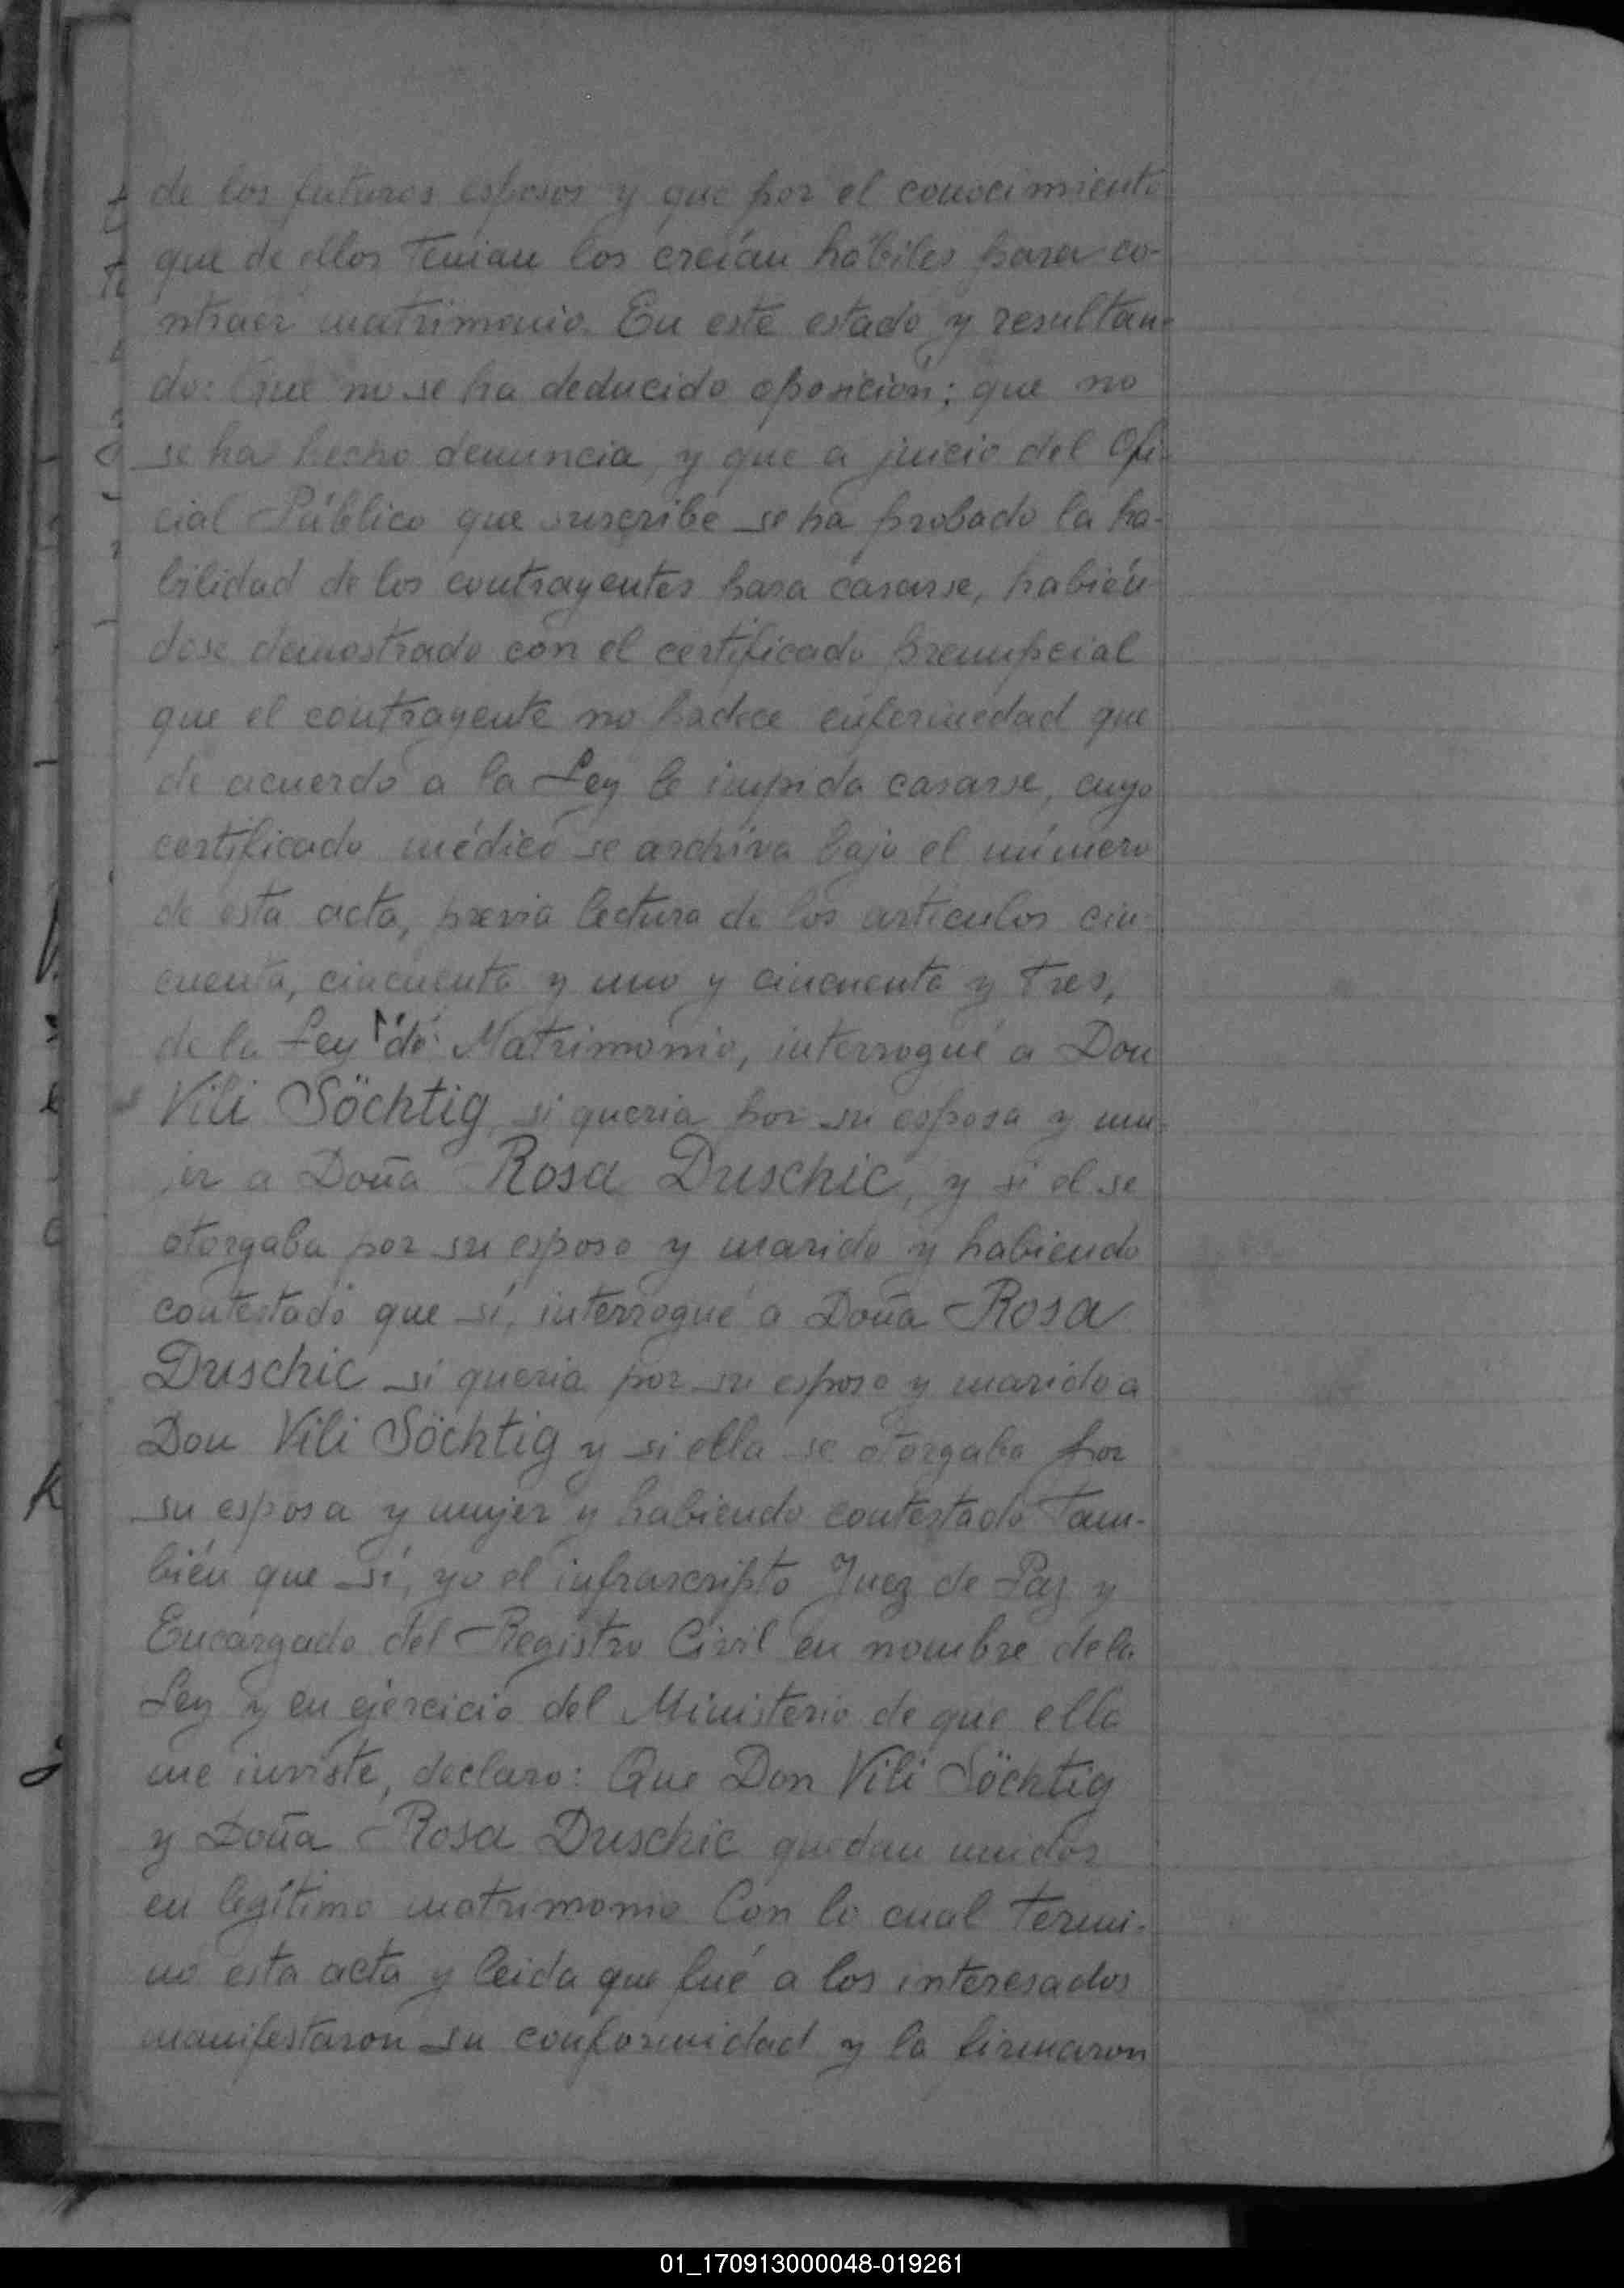 de los futuros esposos y que por el conocimiento
que de ellos tenian los creían hábiles para co-
ntraer matrimonio. En este estado y resultan-
do: Que no se ha deducido oposición; que no
se ha hecho denuncia, y que a juicio del Ofi-
cial Público que suscribe se ha probado la ha-
bilidad de los contrayentes para casarse, habién-
dose demostrado con el certificado prenupcial
que el contrayente no padece enfermedad que
de acuerdo a la Ley le impida casarse, cuyo
certificado médico se archiva bajo el número
de esta acta, previa lectura de los artículos cin-
cuenta, cincuenta y uno y cincuenta y tres,
de la Ley de Matrimonio, interrogué a Don
Vili Söchtig, si queria por su esposa y mu-
jer a Doña Rosa Druschic, y si el se
otorgaba por su esposo y marido y habiendo
contestado que sí, interrogué a Doña Rosa
Druschic si queria por su esposo y marido a
Don Vili Söchtig y si ella se otorgaba por
su esposa y mujer y habiendo contestado tam-
bién que sí, yo el infrascripto Juez de Paz y
Encargado del Registro Civil en nombre de la
Ley y en ejercicio del Ministerio de que ella
me inviste, declaro: Que Don Vili Söchtig
y Doña Rosa Druschic quedan unidos
en legítimo matrimonio Con lo cual termi-
no esta acta y leida que fué a los interesados
manifestaron su conformidad y la firmaron
01_170913000048-019261